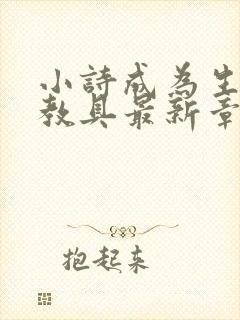 小詩成為生
教具最新章
抱起來